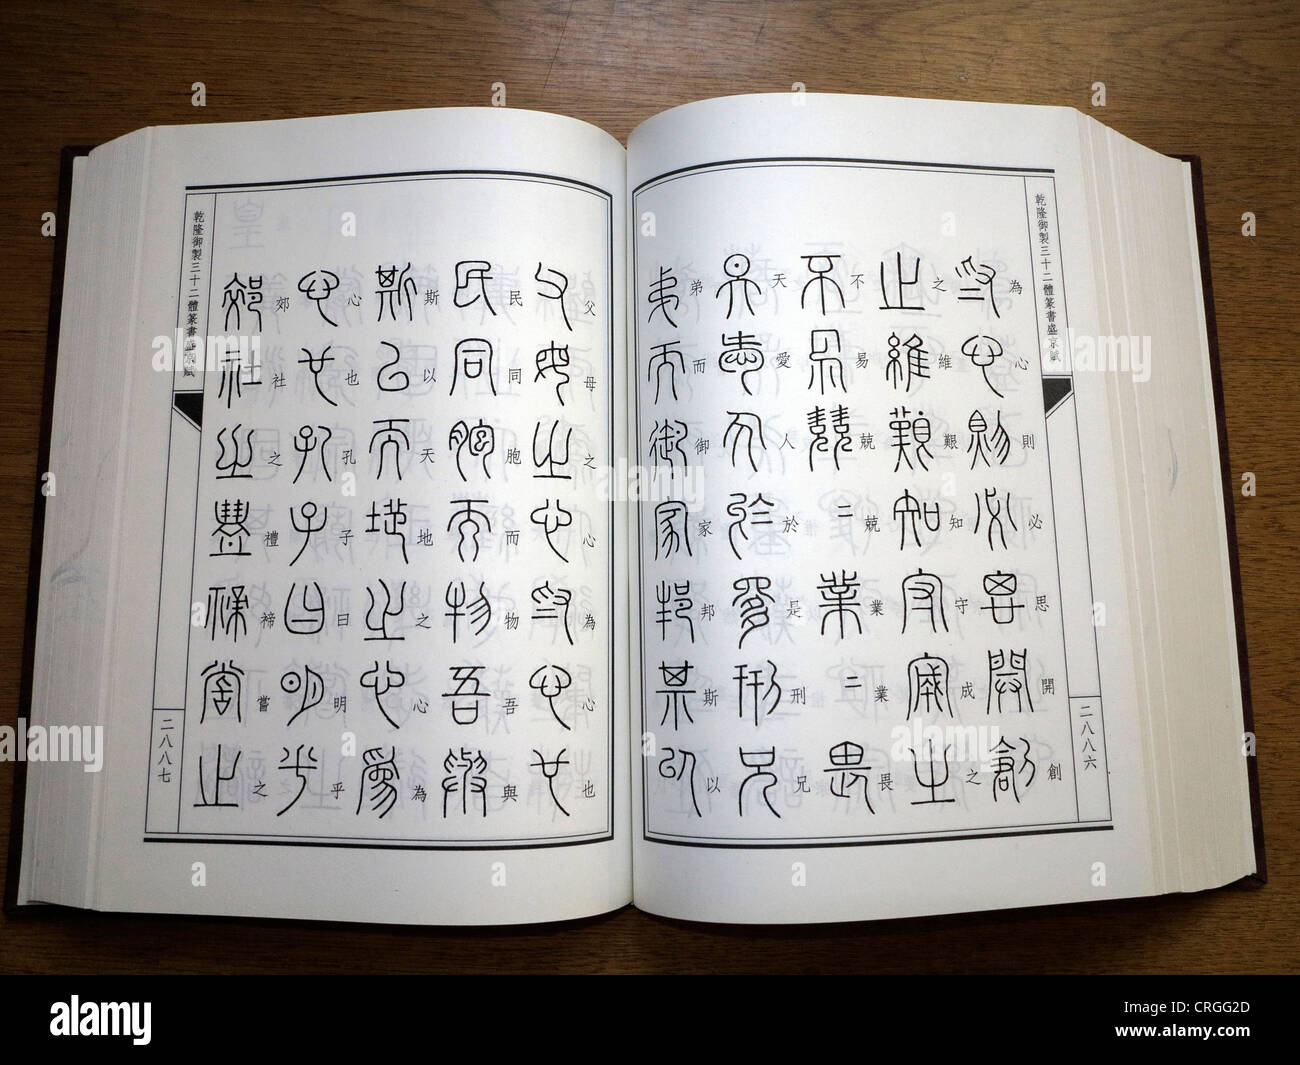 乾隆御製三十二體篆書盛京賦
為心則必思開創
之維艱知守成之
不易兢兢業業畏
天愛人於是刑兄
弟而御家邦斯以
二八八六
父母之心為心也
民同胞而物吾與
斯以天地之心為
心也孔子曰明乎
郊社之禮禘嘗之
乾隆御製三十二體篆書盛京賦
二八八七
alamy
Image ID: CRGG2D
www.alamy.com